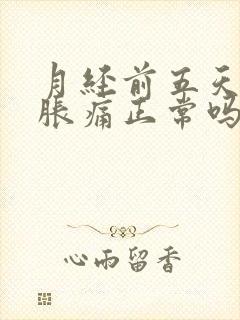 月经前五天
胀痛正常吗
心雨留香